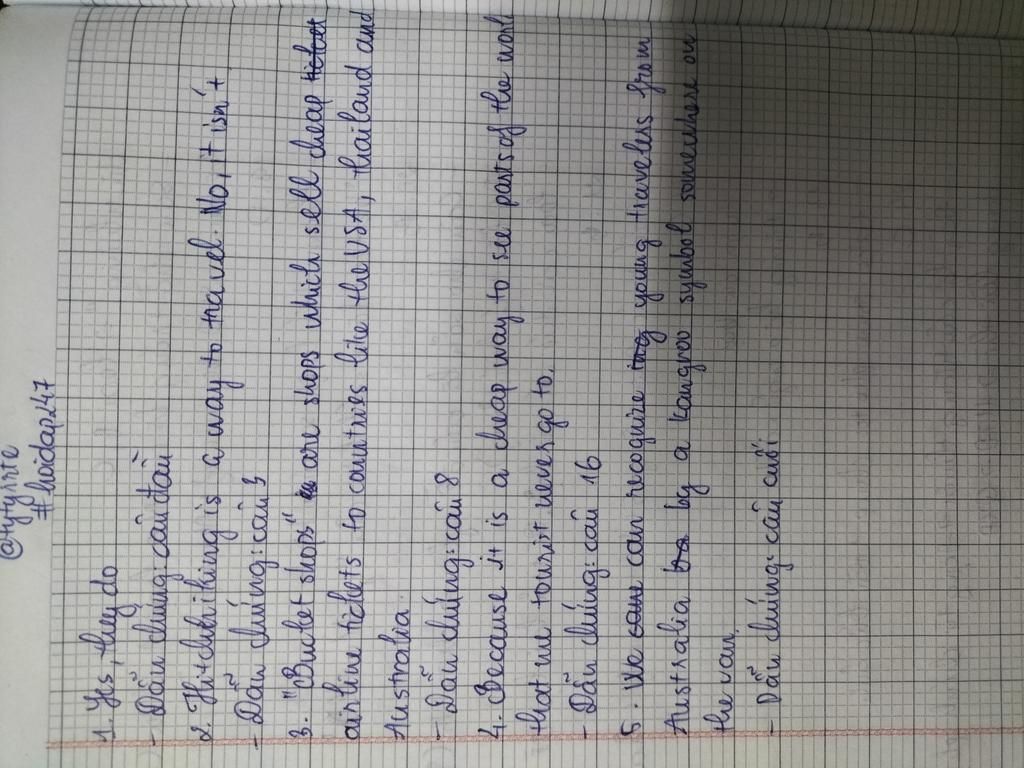 @tytyrste
#hoidap247
1. Yes, they do
- Dẫn chứng: câu đầu
2. Hitchhiking is a way to travel. No, it isn't
- Dẫn chứng: câu 3
3. "Bucket shops" are shops which sell cheap
airline tickets to countries like the USA, thailand and
Australia.
- Dẫn chứng: câu 8
4. Because it is a cheap way to see parts of the world
that me tourist never go to.
- Dẫn chứng: câu 16
5. We can recoquire young traveless from
Australia by a kangroo symbol somewhere on
the van.
- Dẫn chứng: câu cuối